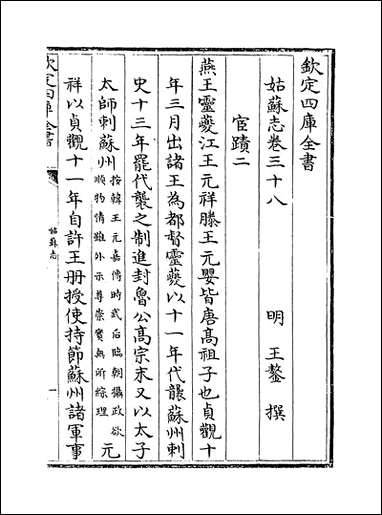 欽定四庫全書
姑蘇志卷三十八
明 王鏊 撰
宦蹟二
燕王靈夔江王元祥滕王元嬰皆唐髙祖子也貞觀十
年三月出諸王為都督靈夔以十一年代襲蘇州刺
史十三年罷代襲之制進封魯公髙宗末又以太子
太師刺蘇州按韓王元嘉傳時武后臨朝攝政欲順物情雖外示尊崇實無所綜理元
祥以貞觀十一年自許王冊授使持節蘇州諸軍事
欽定四庫全書
姑蘇志
一